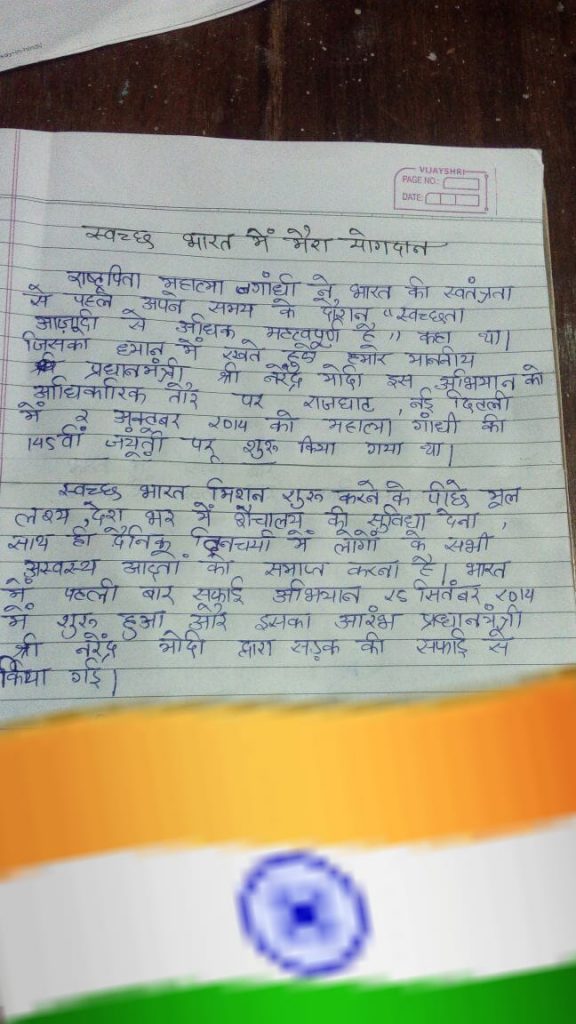 VIJAYSHRI
PAGE NO.:
DATE:
स्वच्छ भारत में मेरा योगदान
राष्ट्रपिता महात्मा गांधी ने भारत की स्वतंत्रता
से पहले अपने समय के दौरान "स्वच्छता
आज़ादी से अधिक महत्वपूर्ण है" कहा था।
जिसका ध्यान में रखते हुये हमारे माननीय
प्रधानमंत्री श्री नरेंद्र मोदी इस अभियान को
आधिकारिक तौर पर राजघाट, नई दिल्ली
में २ अक्तूबर २०१४ को महात्मा गांधी की
145वीं जयंती पर शुरू किया गया था।
स्वच्छ भारत मिशन शुरू करने के पीछे मूल
लक्ष्य, देश भर में शौचालय की सुविधा देना,
साथ ही दैनिक दिनचर्या में लोगों के सभी
अस्वस्थ आदतों को समाप्त करना है। भारत
में पहली बार सफाई अभियान २५ सितंबर २०१४
में शुरू हुआ और इसका आरंभ प्रधानमंत्री
श्री नरेंद्र मोदी द्वारा सड़क की सफाई से
किया गई।